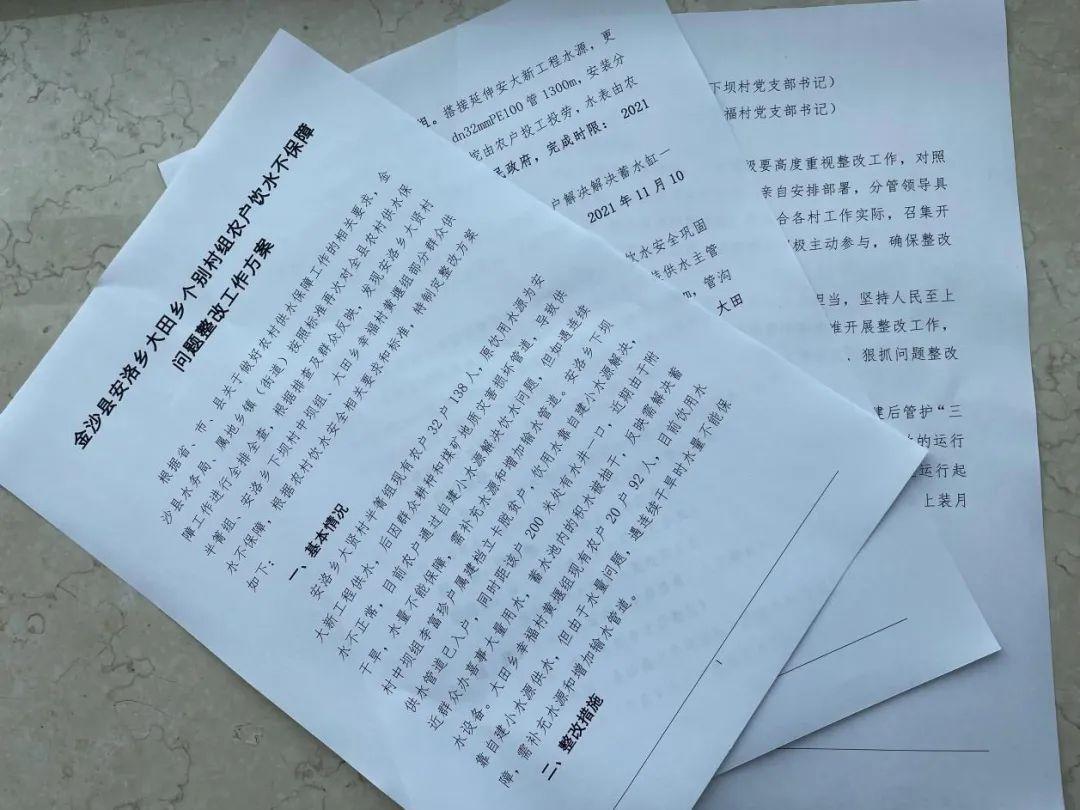 金沙县安洛乡大田乡个别村组农户饮水不保障
问题整改工作方案
根据省、市、县关于做好农村供水保障工作的相关要求，金
沙县水务局、属地乡镇（街道）按照标准再次对全县农村供水保
障工作进行全排全查，根据排查及群众反映，发现安洛乡大贤村
半菁组、安洛乡下坝村中坝组、大田乡幸福村黄堰组部分群众供
水不保障，根据农村饮水安全相关要求和标准，特制定整改方案
如下：
一、基本情况
安洛乡大贤村半菁组现有农户32户138人，原饮用水源为安
大新工程供水，后因群众耕种和煤矿地质灾害损坏管道，导致供
水不正常，目前农户通过自建小水源解决饮水问题，但如遇连续
干旱，水量不能保障，需补充水源和增加输水管道。安洛乡下坝
村中坝组李富珍户属建档立卡脱贫户，饮用水靠自建小水源解决，
供水管道已入户，同时距该户200米处有水井一口，近期由于附
近群众办喜事大量用水，蓄水池内的积水被抽干，反映需解决蓄
水设备。大田乡幸福村黄堰组现有农户20户92人，目前饮用水
靠自建小水源供水，但由于水量问题，遇连续干旱时水量不能保
障，需补充水源和增加输水管道。
二、整改措施
1
。搭接延伸安大新工程水源，更
dn32mmPE100管1300m，安装分
由农户投工投劳，水表由农
民政府，完成时限：2021
户解决解决蓄水缸一
2021年11月10
饮水安全巩固
供水主管
，管沟
大田
下坝村党支部书记）
福村党支部书记）
级要高度重视整改工作，对照
亲自安排部署，分管领导具
合各村工作实际，召集开
极主动参与，确保整改
担当，坚持人民至上
准开展整改工作，
狠抓问题整改
建后管护“三
的运行
运行起
上装月